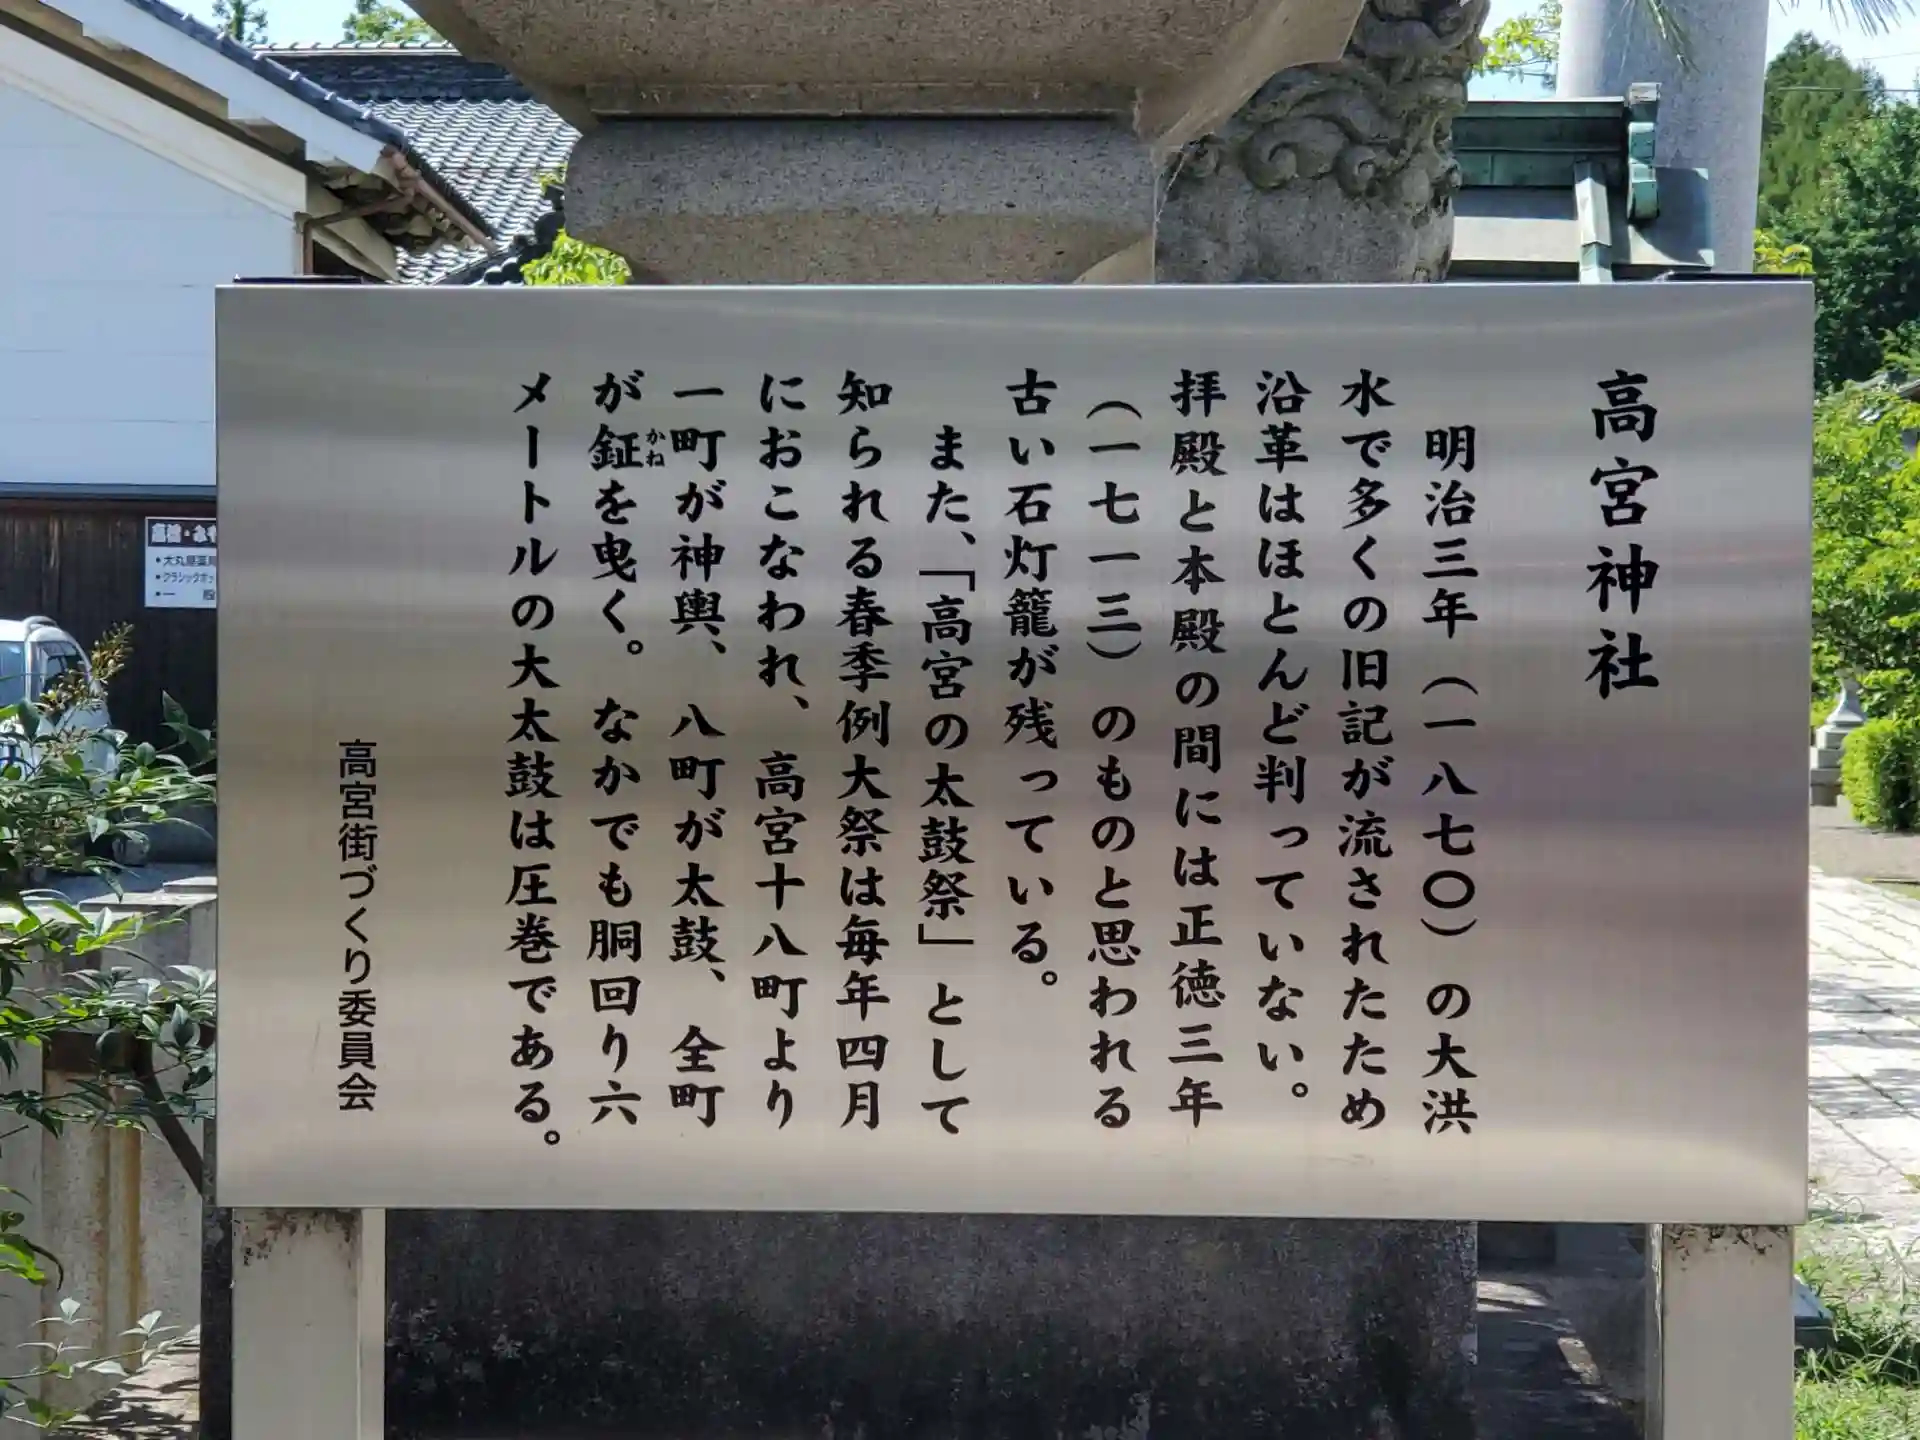 高宮神社
明治三年（一八七〇）の大洪
水で多くの旧記が流されたため
沿革はほとんど判っていない。
拝殿と本殿の間には正徳三年
（一七一三）のものと思われる
古い石灯籠が残っている。
また、「高宮の太鼓祭」として
知られる春季例大祭は毎年四月
におこなわれ、高宮十八町より
一町が神輿、八町が太鼓、全町
が鉦を曳く。なかでも胴回り六
かね
メートルの大太鼓は圧巻である。
高宮街づくり委員会
・大丸屋薬局
・クラシックホッ
・一　般